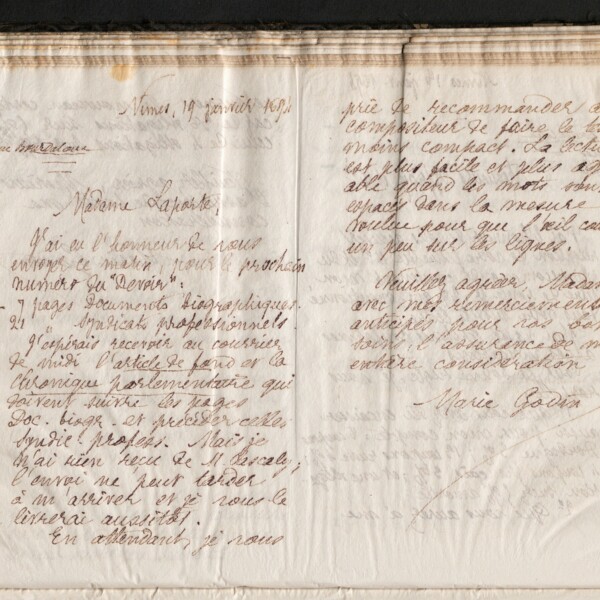 Nimes, 19 janvier 1894
Bourdaloue
Madame Laporte,
J'ai eu l'honneur de vous
envoyer ce matin, pour le prochain
numéro du "Devoir":
7 pages documents biographiques.
21 " Syndicats professionnels.
J'espérais recevoir au courrier
de midi l'article de fond et la
chronique parlementaire qui
doivent suivre les pages
Doc. biogr. et précéder celles
Syndic. profess. Mais je
n'ai rien reçu de M. Pascaly;
l'envoi ne peut tarder
à m'arriver et je vous le
livrerai aussitôt.
En attendant, je vous
prie de recommander
compositeur de faire le
moins compact. La
est plus facile et plus
able quand les mots sont
espacés dans la mesure
voulue pour que l'œil
un peu sur les lignes.
Veuillez agréer, Madame
avec mes remerciements
anticipés pour vos bons
soins, l'assurance de
entière considération
Marie Godin